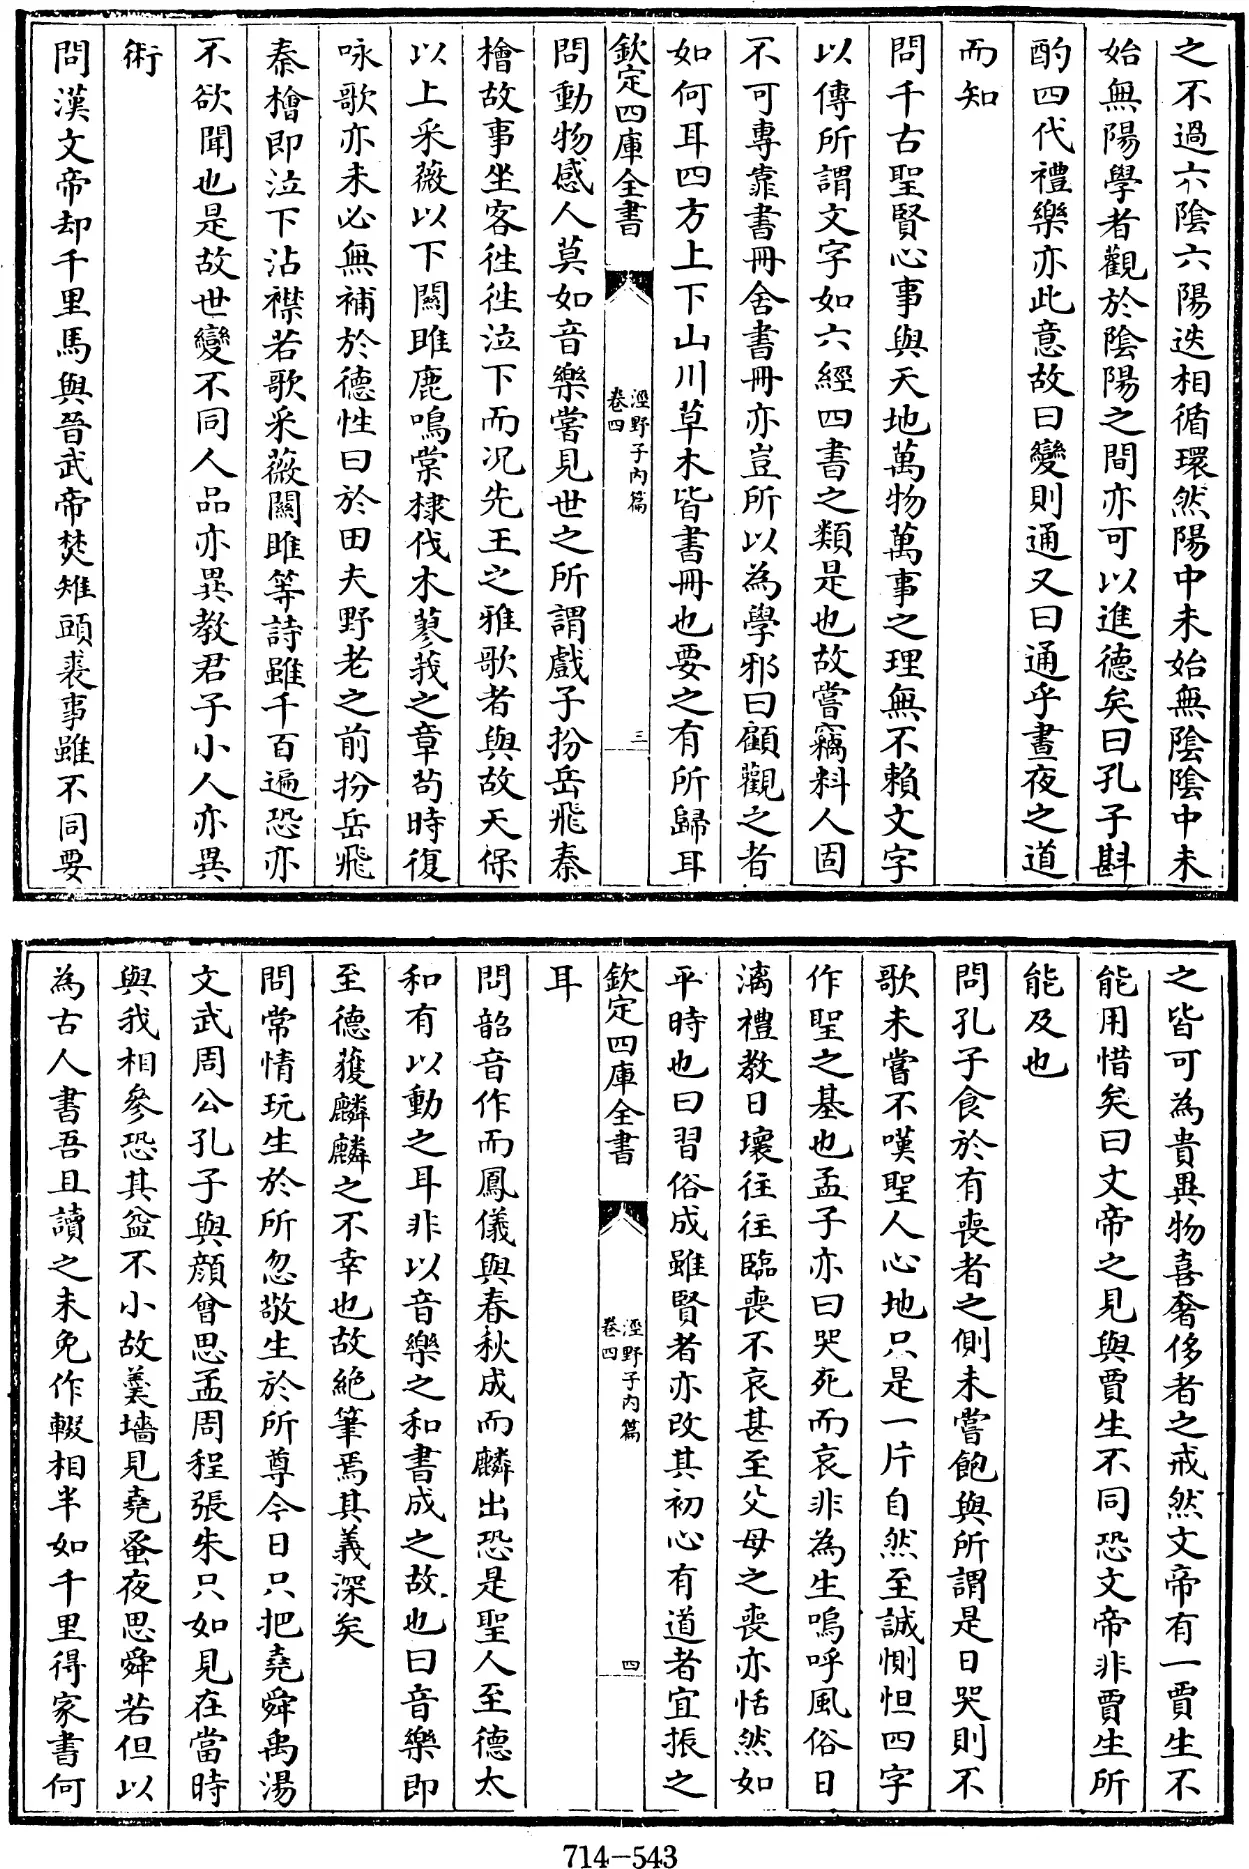 之不過六陰六陽迭相循環然陽中未始無陰陰中未
始無陽學者觀於陰陽之間亦可以進德矣曰孔子斟
酌四代禮樂亦此意故曰變則通又曰通乎晝夜之道
而知
問千古聖賢心事與天地萬物萬事之理無不賴文字
以傳所謂文字如六經四書之類是也故嘗竊料人固
不可專靠書冊舍書冊亦豈所以為學邪曰顧觀之者
如何耳四方上下山川草木皆書冊也要之有所歸耳
欽定四庫全書
涇野子内篇
卷四
三
問動物感人莫如音樂嘗見世之所謂戲子扮岳飛秦
檜故事坐客徃徃泣下而况先王之雅歌者與故天保
以上采薇以下關雎鹿鳴棠棣伐木蓼莪之章茍時復
咏歌亦未必無補於德性曰於田夫野老之前扮岳飛
秦檜即泣下沾襟若歌采薇關雎等詩雖千百遍恐亦
不欲聞也是故世變不同人品亦異教君子小人亦異
術
問漢文帝却千里馬與晉武帝焚雉頭裘事雖不同要
之皆可為貴異物喜奢侈者之戒然文帝有一賈生不
能用惜矣曰文帝之見與賈生不同恐文帝非賈生所
能及也
問孔子食於有喪者之側未嘗飽與所謂是日哭則不
歌未嘗不嘆聖人心地只是一片自然至誠惻怛四字
作聖之基也孟子亦曰哭死而哀非為生嗚呼風俗日
漓禮教日壞往往臨喪不哀甚至父母之喪亦恬然如
平時也曰習俗成雖賢者亦改其初心有道者宜振之
欽定四庫全書
涇野子内篇
卷四
四
耳
問韶音作而鳳儀與春秋成而麟出恐是聖人至德太
和有以動之耳非以音樂之和書成之故也曰音樂即
至德獲麟麟之不幸也故絶筆焉其義深矣
問常情玩生於所忽敬生於所尊今日只把堯舜禹湯
文武周公孔子與顔曾思孟周程張朱只如見在當時
與我相參恐其益不小故羮墻見堯蚤夜思舜若但以
為古人書吾且讀之未免作輟相半如千里得家書何
714-543